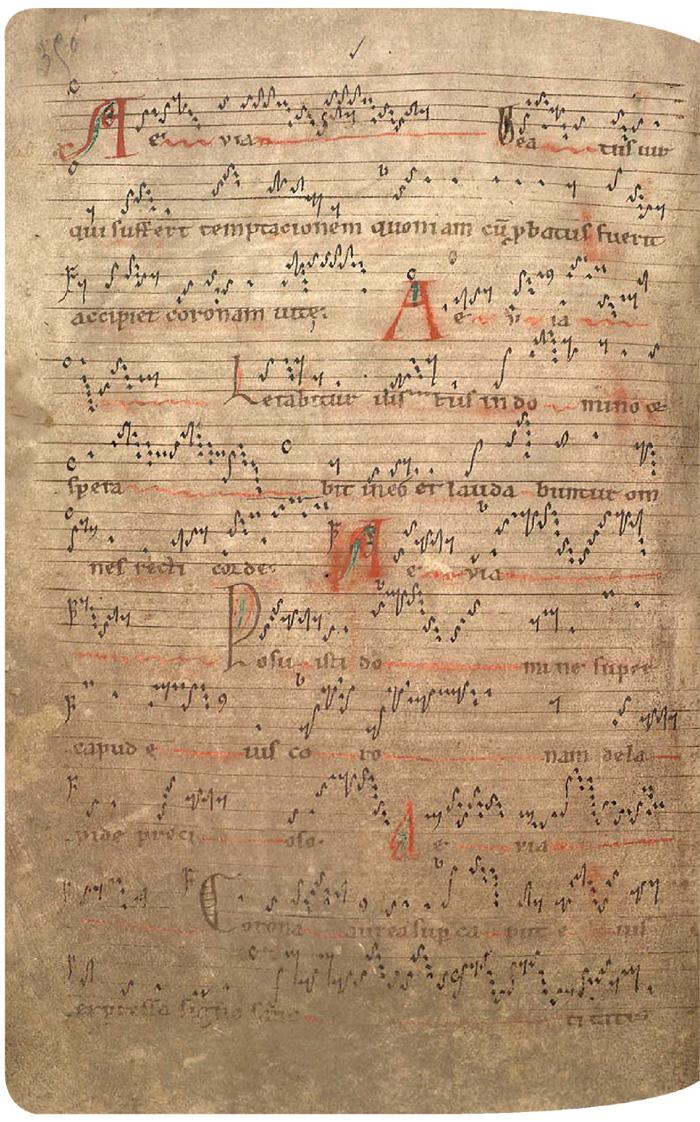 A e via Bea tus uir
qui suffert temptacionem quoniam cū ꝓbatus fuerit
accipiet coronam uitę. A e v ia
Letabitur ius tus in do mino &
spera bit in eo et lauda buntur om
nes recti corde. A e via
Posu isti do mi ne super
capud e ius co ro nam de la
pide preci oso. A e via
Corona aurea sup ca put e ius
expressa signo sanc titatis